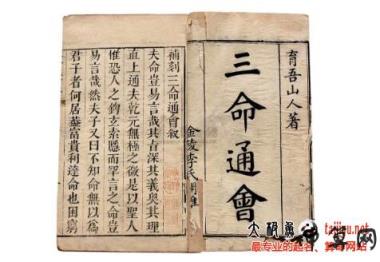 育吾山人著
三命通會
金陵李氏
補刻三命通會叙
夫命豈易言哉其旨深其義奧其理
直上通夫乾元無極之微是以聖人
惟恐人之鉤玄索隱而罕言之命豈
易言哉然夫子又曰不知命無以爲
君子者何居葢富貴利達命也困窮
最专业的起名、算命网站